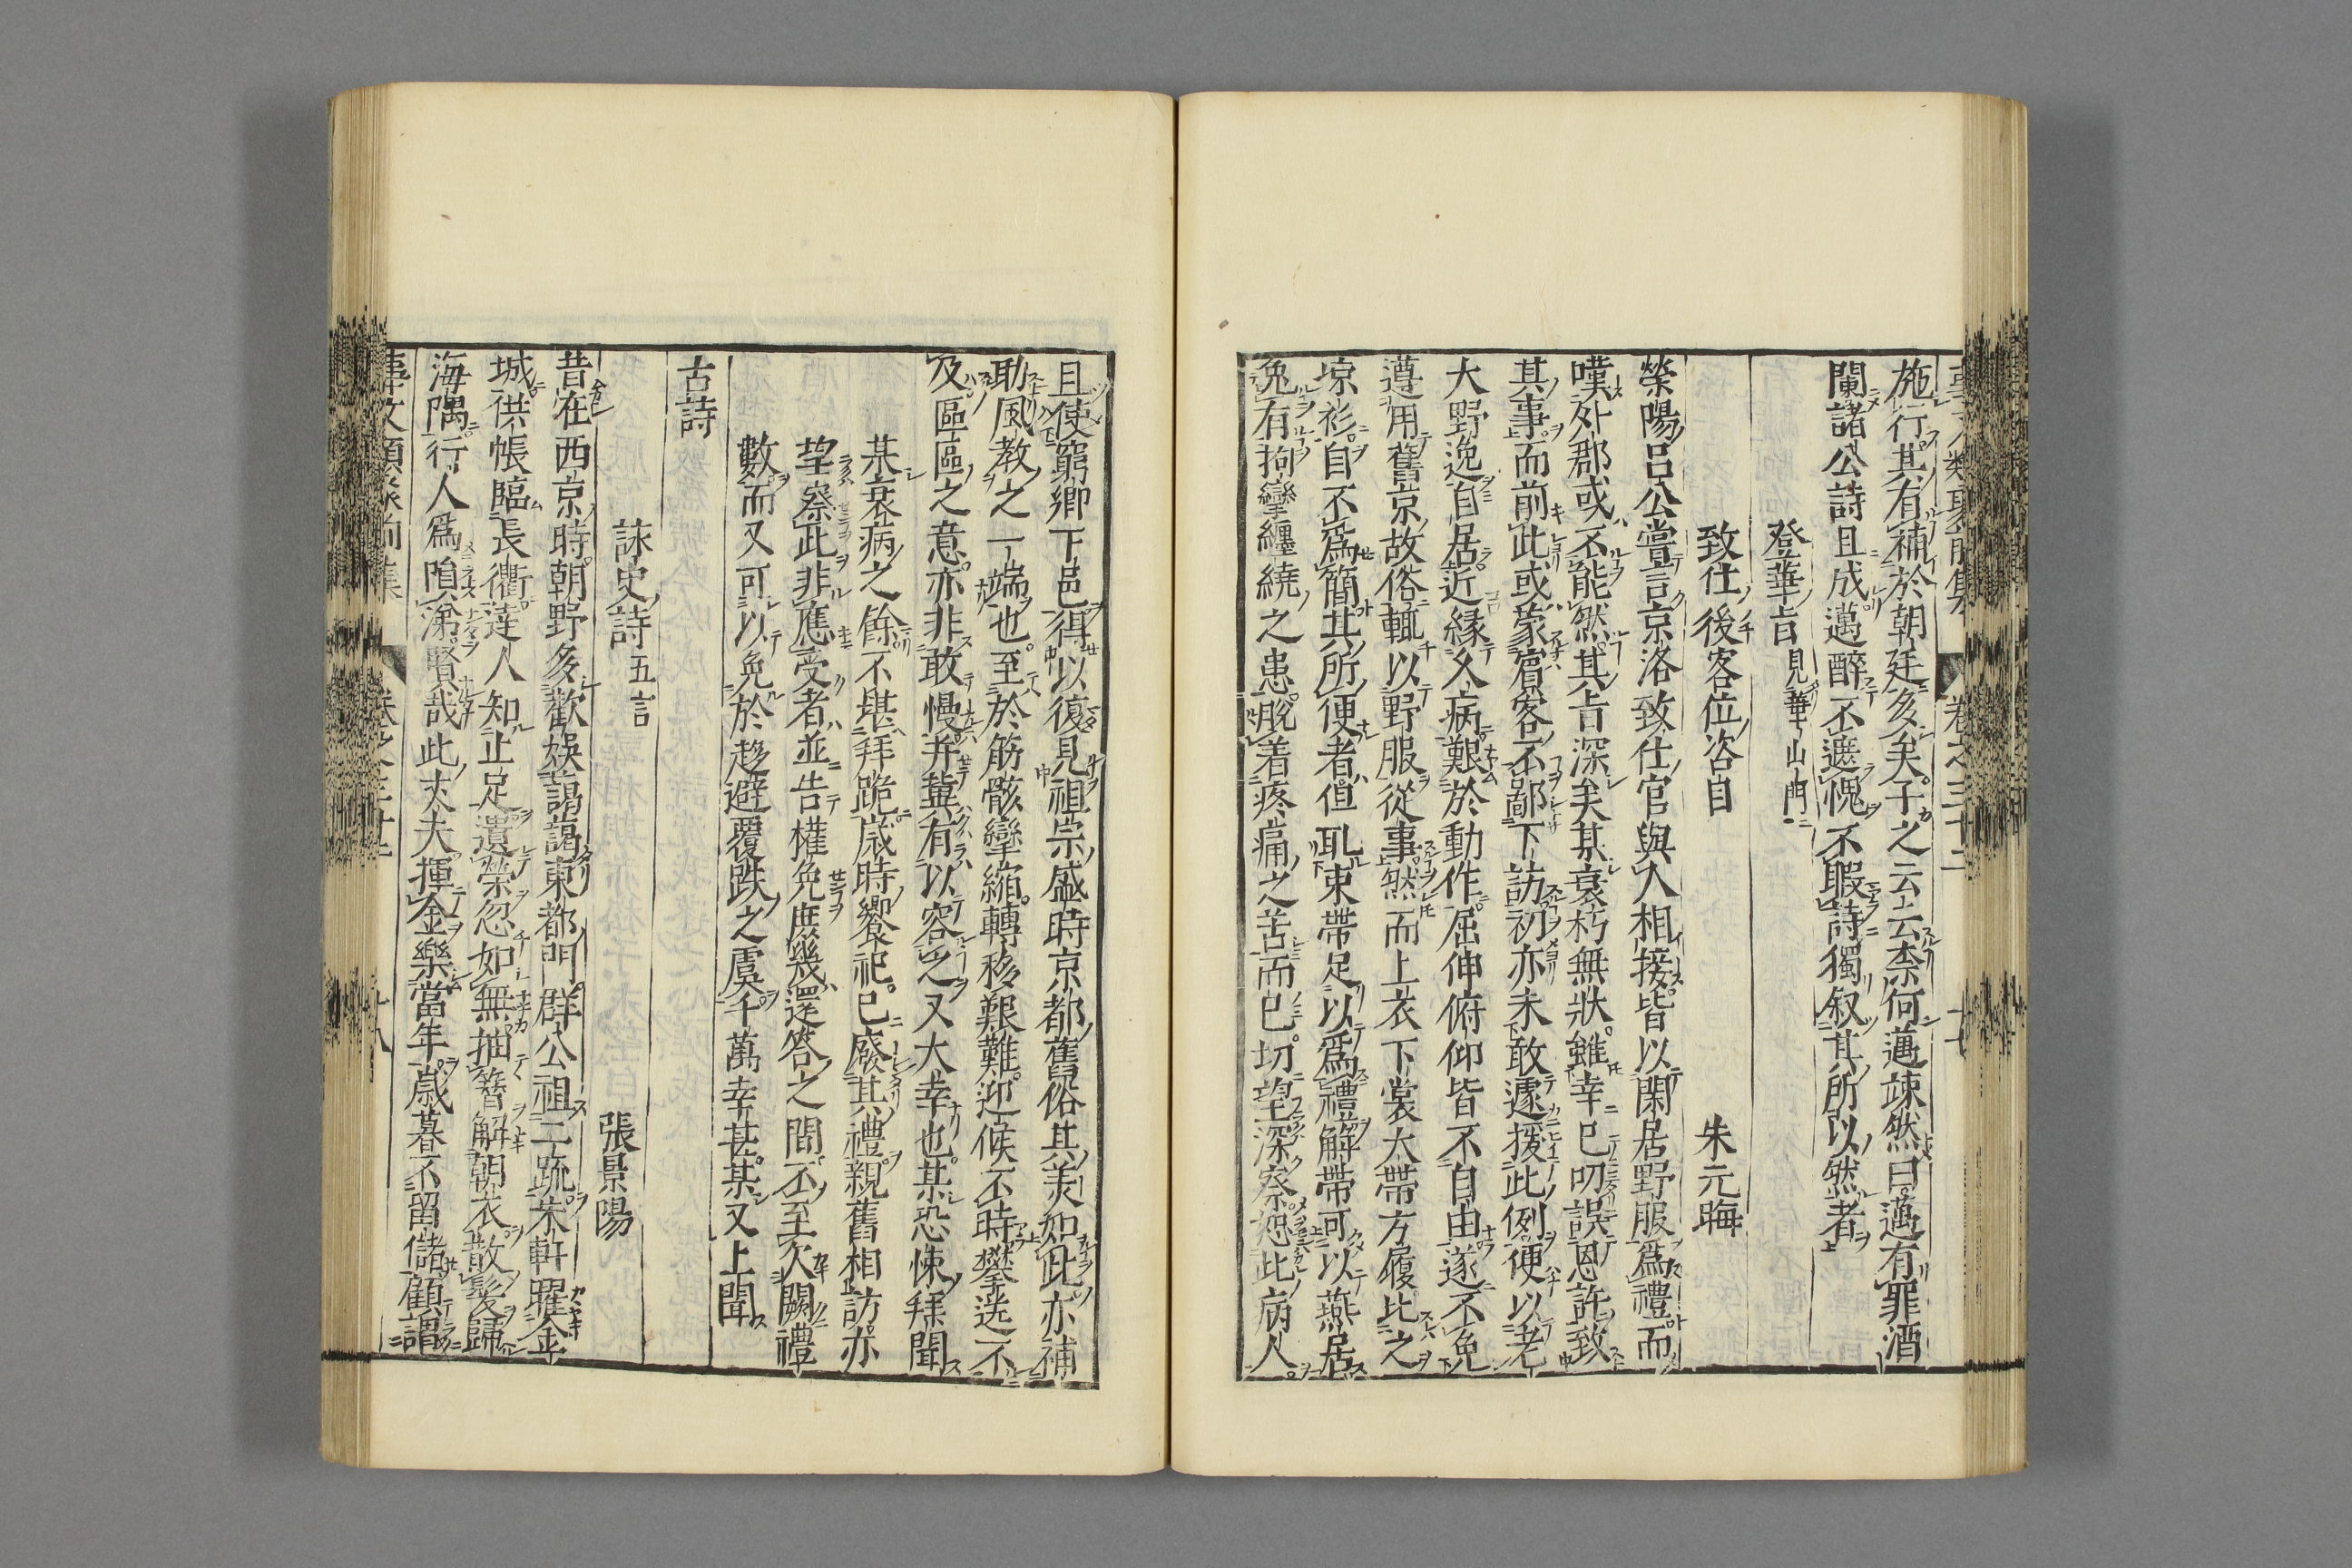 施行其有補於朝廷多矣子之云云柰何邁竦然曰邁有罪酒
闌諸公詩且成邁醉不遮愧不暇詩獨叙其所以然者
登華旨見華山門
致仕後客位咨目 朱元晦
滎陽呂公嘗言京洛致仕官與人相接皆以閑居野服爲禮而
嘆外郡或不能然其旨深矣某衰朽無狀雖幸已叨誤恩許致
其事而前此或蒙賔客不鄙下訪初亦未敢遽援此例便以老
大野逸自居近緣久病艱於動作屈伸俯仰皆不自由遂不免
遵用舊京故俗輒以野服從事然而上衣下裳大帶方履比之
凉衫自不爲簡其所便者但取束帶足以爲禮解帶可以燕居
免有拘攣纏繞之患脫着疼痛之苦而已切望深察恕此病人
且使窮鄉下邑得以復見祖宗盛時京都舊俗其羙如此亦補
助風教之一端也至於筋骸攣縮轉移艱難迎候不時攀送不
及區區之意亦非敢慢并冀有以容之又大幸也某恐悚拜聞
某衰病之餘不堪拜跪歳時饗祀已廢其禮親舊相訪亦
望察此非應受者並告權免庶幾還答之間不至欠闕禮
數而又可以免於趍避覆跌之虞千萬幸甚某又上聞
古詩
詠史詩五言 張景陽
昔在西京時朝野多歡娯藹藹東都門群公祖二疏朱軒曜金
城供帳臨長衢達人知止足遺榮忽如無抽簪解朝衣散髮歸
海隅行人爲隕涕賢哉此丈夫揮金樂當年歳暮不留儲顧謂